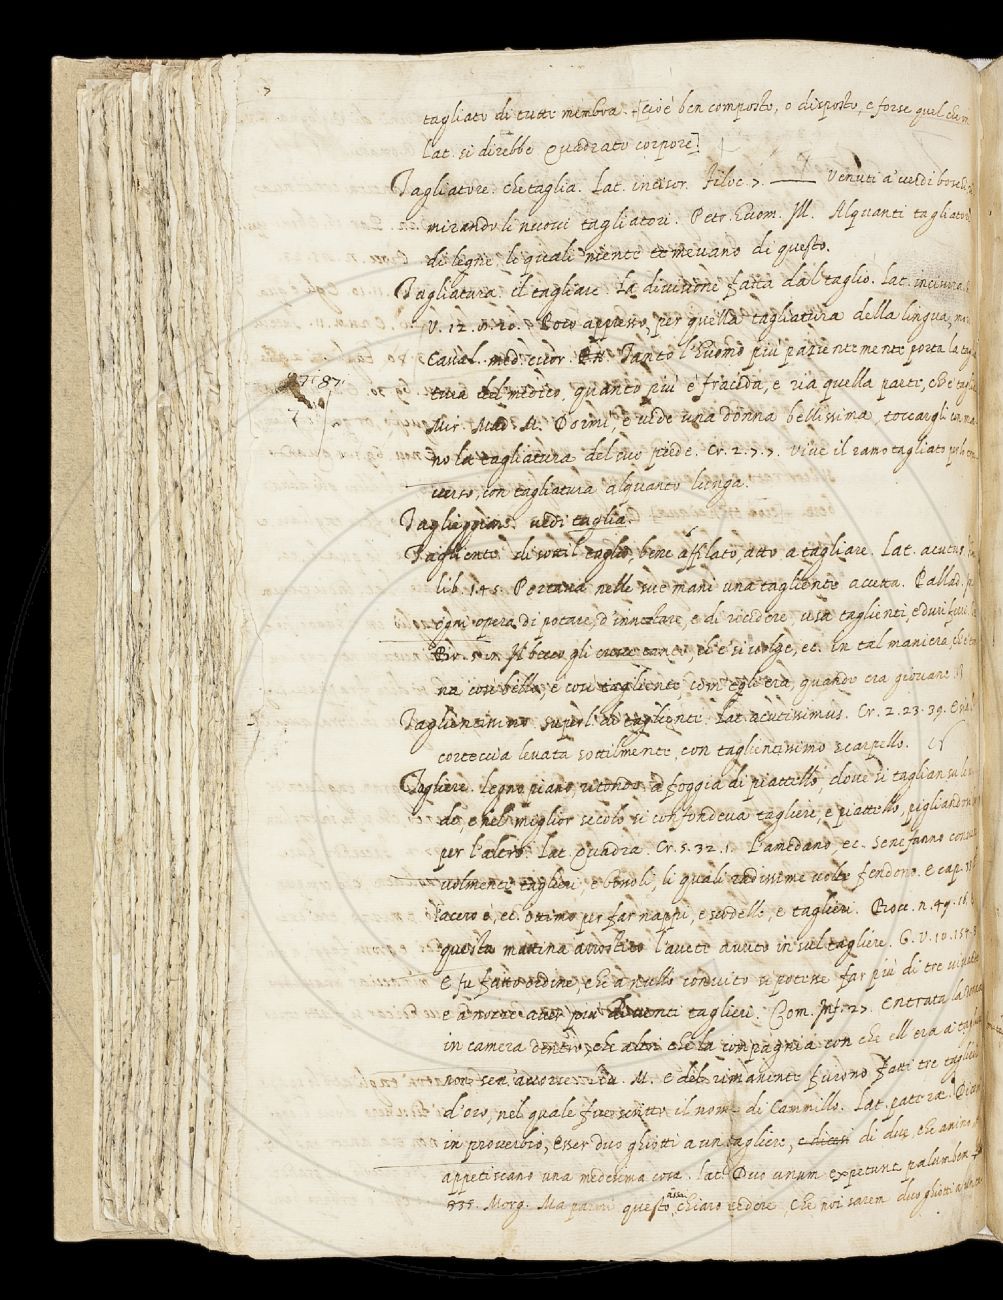 tagliato di tutte membra. [cioè ben composto, o disposto, e forse quel che in
Lat. si direbbe Quadrato corpore]
Tagliatore. che taglia. Lat. incisor. Filoc. 7. Venuti a' verdi boschi
mirando li nuovi tagliatori. Petr. Huom. Ill. Alquanti tagliatori
di legne, li quali niente temevano di questo.
Tagliatura. il tagliare. La divisione fatta dal taglio. Lat. incisura.
V. 12. 8. 20. Poco appresso, per quella tagliatura della lingua, mo
Caval. med. cuor. Tanto l'huomo più pazientemente porta la tagl
tura del medico, quanto più è fracida, e ria quella parte, ch'è taglia
Mir. Mad. M. Dormì, e vide una donna bellissima, toccargli con ma
no la tagliatura del suo piede. Cr. 2. 7. 7. Vive il ramo tagliato per lo
verso, con tagliatura alquanto lunga.
Taglieggiare. vedi taglia.
Tagliente. di sottil taglio, bene affilato, atto a tagliare. Lat. acutus.
lib. 145. Portava nelle sue mani una tagliente accetta. Pallad.
ogni opera di potare, d'innestare, e di ricidere, usa taglienti, e duri ferri.
gli ch'e' si volge, ec. in tal maniera, ch'e' to
na così bello, e così tagliente com'egli era, quando era giovane.
Taglientissimo. superl. di tagliente. Lat. acutissimus. Cr. 2. 23. 39.
corteccia levata sottilmente, con taglientissimo scarpello.
Tagliere. legno piano, ritondo, a foggia di piattello, dove si taglian su le
de, e nel miglior secolo si confondeva tagliere, e piattello, pigliandon
per l'altro. Lat. quadra. Cr. 5. 32. 1. L'anedano, ec. Se ne fanno conve
volmente taglieri, e bossoli, li quali radissime volte fendono. E cap.
L'acero è, ec. ottimo per far nappi, e scodelle, e taglieri. Bocc. n. 49. 16.
questa mattina arrostito l'avete avuto in sul tagliere. G. V. 10. 154.
E fu fatto ordine, che a nullo convito si potesse far più di tre vivande
e a nozze aver più di venti taglieri. Com. Inf. 27. Entrata la
in camera dentro, che altri che la compagnia con che ell'era a tagliere
non sen'avvisse. M. E del rimanente furono fatti tre taglieri
d'oro, nel quale fue scritto il nome di Cammillo. Lat. paterae.
in proverbio, Esser duo ghiotti a un tagliere, e dicesi di due, che amino,
appetiscano una medesima cosa. Lat. Duo unum expetunt palumbem
335. Morg. Ma parmi questo assai chiaro vedere, Che noi sarem duo ghiotti a un